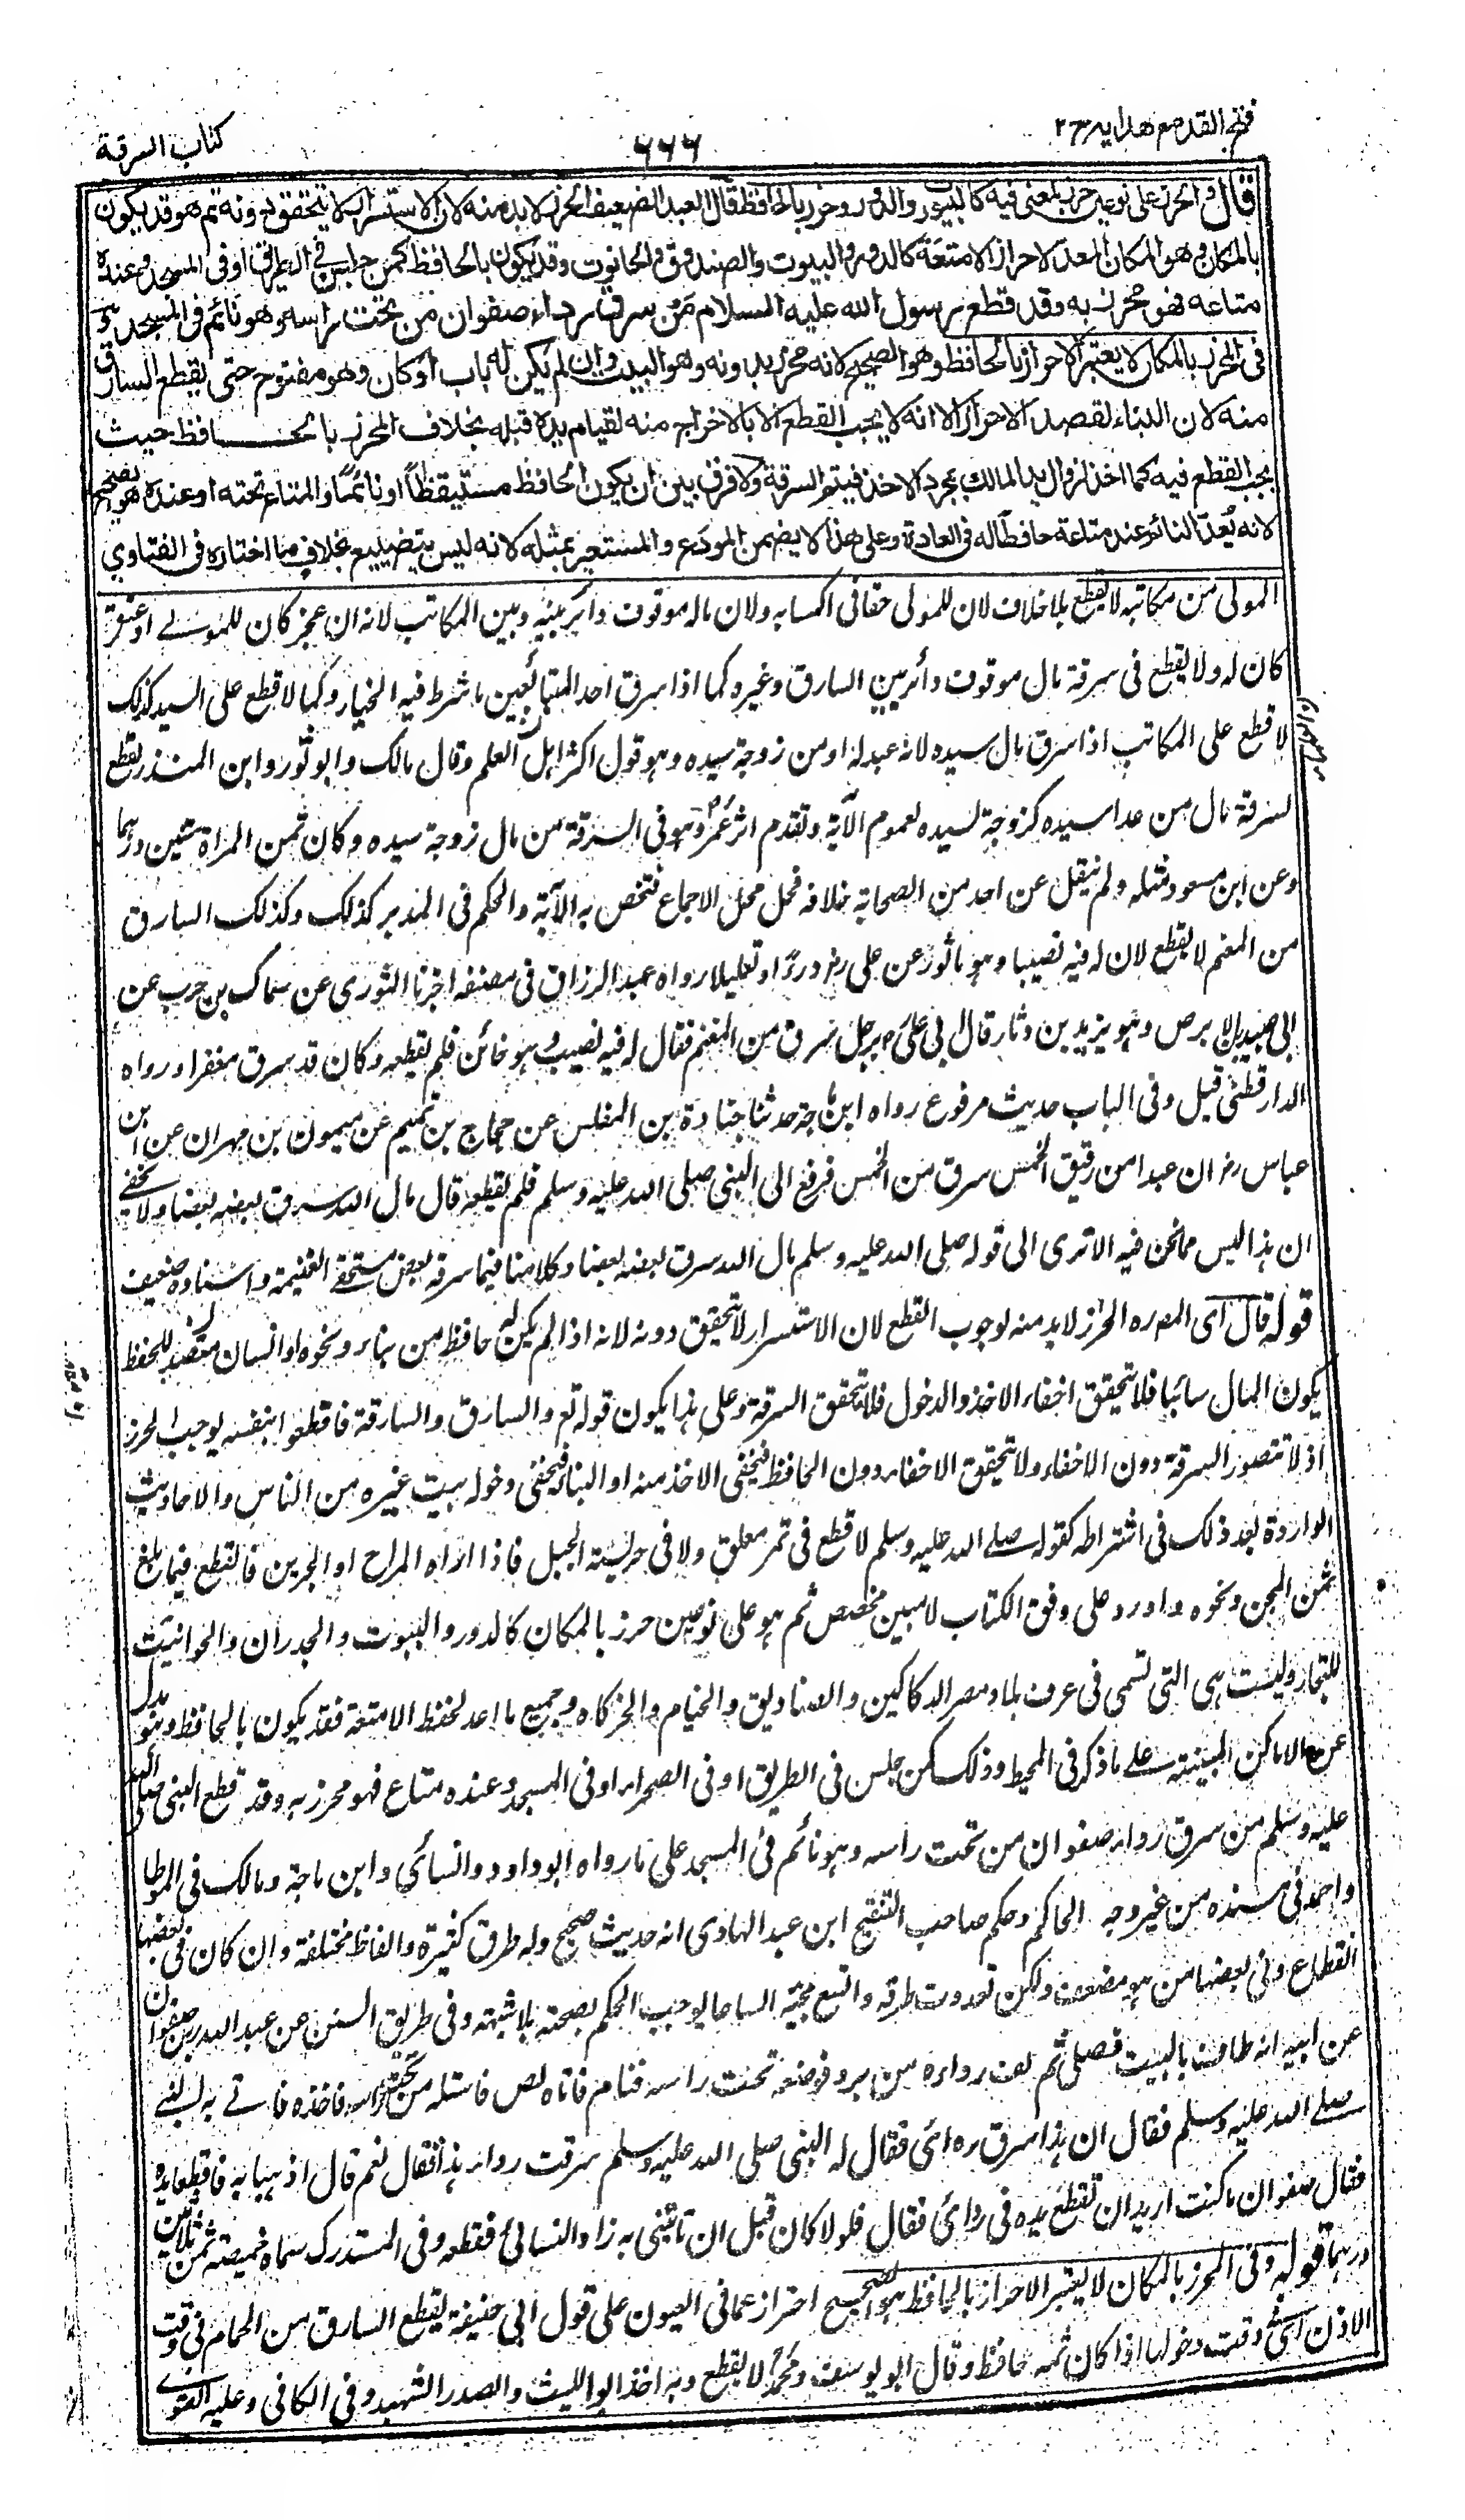 فتح القدير مع هدايه ج٢
٧٦٦
كتاب السرقة
قال والحرز على نوعين حرز لمعنى فيه كالبيوت والدور وحرز بالحافظ قال العبد الضعيف الحرز لا بد منه لان الاستسرار لا يتحقق دونه ثم هو قد يكون
بالمكان وهو المكان المعد لاحراز الامتعة كالدور والبيوت والصندوق والحانوت وقد يكون بالحافظ كمن جلس في الطريق او في المسجد وعنده
متاعه فهو محرز به وقد قطع رسول الله عليه السلام من سرق رداء صفوان من تحت راسه وهو نائم في المسجد
في المحرز بالمكان لا يعتبر الاحراز بالحافظ وهو الصحيح لانه محرز بدونه وهو البيت وان لم يكن له باب او كان وهو مفتوح حتى يقطع السارق
منه لان البناء لقصد الاحراز الا انه لا يجب القطع الا بالاخراج منه لقيام يده قبله بخلاف المحرز بالحافظ حيث
يجب القطع فيه كما اخذ لزوال يد المالك بمجرد الاخذ فيتم السرقة ولا فرق بين ان يكون الحافظ مستيقظا او نائما والمتاع تحته او عنده هو الصحيح
لانه يعد النائم عند متاعه حافظا له في العادة وعلى هذا لا يضمن المودع والمستعير بمثله لانه ليس بتضييع بخلاف ما اختاره في الفتاوي
المولى من مكاتبه لا يقطع بلا خلاف لان للمولى حقا في اكسابه ولان ماله موقوف دائر بينه وبين المكاتب لانه ان عجز كان للمولى او عتق
كان له ولا يقطع في سرقة مال موقوف دائر بين السارق وغيره كما اذا سرق احد المتبائعين ما شرط فيه الخيار وكما لا قطع على السيد كذلك
لا قطع على المكاتب اذا سرق مال سيده لانه عبد له او من زوجة سيده وهو قول اكثر اهل العلم وقال مالك وابو ثور وابن المنذر يقطع
لسرقة مال من عدا سيده كزوجة لسيده لعموم الآية وتقدم اثر عمر وهو في السرقة من مال زوجة سيده وكان ثمن المراة ستين درهما
وعن ابن مسعود مثله ولم ينقل عن احد من الصحابة خلافه فحل محل الاجماع فتخص به الآية والحكم في المدبر كذلك وكذلك السارق
من المغنم لا يقطع لان له فيه نصيبا وهو ماثور عن على رض درءا وتعليلا رواه عبد الرزاق في مصنفه اخبرنا الثورى عن سماك بن حرب عن
ابى عبيد بن الابرص وهو يزيد بن دثار قال اتى على برجل سرق من المغنم فقال له فيه نصيب وهو خائن فلم يقطعه وكان قد سرق مغفرا ورواه
الدارقطنى قيل وفى الباب حديث مرفوع رواه ابن ماجة حدثنا جنادة بن المفلس عن حجاج بن تميم عن ميمون بن مهران عن ابن
عباس رض ان عبدا من رقيق الخمس سرق من الخمس فرفع الى النبى صلى الله عليه وسلم فلم يقطعه قال مال الله سرق بعضه بعضا ولا يخفى
ان هذا ليس مما نحن فيه الا ترى الى قوله صلى الله عليه وسلم مال الله سرق بعضه بعضا وكلامنا فيما سرقه بعض مستحقى الغنيمة واسناده ضعيف
قوله قال اى المصره الحرز لا بد منه لوجوب القطع لان الاستسرار لا يتحقق دونه لانه اذا لم يكن له حافظ من بناء ونحوه او انسان متصد للحفظ
يكون المال سائبا فلا يتحقق اخفاء الاخذ والدخول فلا تتحقق السرقة وعلى هذا يكون قوله تع والسارق والسارقة فاقطعوا بنفسه يوجب الحرز
اذ لا تتصور السرقة دون الاخفاء ولا يتحقق الاخفاء دون الحافظ فيخفى الاخذ منه او البناء فيخفى دخوله بيت غيره من الناس والاحاديث
الواردة بعد ذلك فى اشتراطه كقوله صلى الله عليه وسلم لا قطع فى ثمر معلق ولا فى حريسة الجبل فاذا آواه المراح او الجرين فالقطع فيما بلغ
ثمن المجن ونحوه وارد على وفق الكتاب لا مبين مخصص ثم هو على نوعين حرز بالمكان كالدور والبيوت والجدران والحوانيت
للتجار وليست هى التى تسمى فى عرف بلاد مصر الدكاكين والصناديق والخيام والخركاه وجميع ما اعد لحفظ الامتعة فقد يكون بالحافظ وهو بدل
عن الاماكن المبنية على ما ذكر فى المحيط وذلك كمن جلس فى الطريق او فى الصحراء او فى المسجد وعنده متاع فهو محرز به وقد قطع النبى صلى الله
عليه وسلم من سرق رداء صفوان من تحت راسه وهو نائم فى المسجد على ما رواه ابو داود والنسائي وابن ماجة ومالك فى الموطا
واحمد فى مسنده من غير وجه الحاكم وحكم صاحب التنقيح ابن عبد الهادى انه حديث صحيح وله طرق كثيرة والفاظ مختلفة وان كان فى بعضها
انقطاع وفى بعضها من هو مضعف ولكن تعددت طرقه واتسع مجيئه اتساعا يوجب الحكم بصحته بلا شبهة وفى طريق السنن عن عبد الله بن صفوان
عن ابيه انه طاف بالبيت فصلى ثم لف رداءه من برد فوضعه تحت راسه فنام فاتاه لص فاستله من تحت راسه فاخذه فاتى به النبى
صلى الله عليه وسلم فقال ان هذا سرق ردائى فقال له النبى صلى الله عليه وسلم سرقت رداء هذا فقال نعم قال اذهبا به فاقطعا يده
فقال صفوان ما كنت اريد ان تقطع يده فى ردائى فقال فلولا كان قبل ان تاتينى به زاد النسائى فقطعه وفى المستدرك سماه خميصة ثمن ثلاثين
درهما قوله وفى المحرز بالمكان لا يعتبر الاحراز بالحافظ هو الصحيح احتراز عما فى العيون على قول ابى حنيفة يقطع السارق من الحمام فى وقت
الاذن اى وقت دخولها اذا كان ثمه حافظ وقال ابو يوسف ومحمد لا يقطع وبه اخذ ابو الليث والصدر الشهيد وفى الكافى وعليه الفتوى